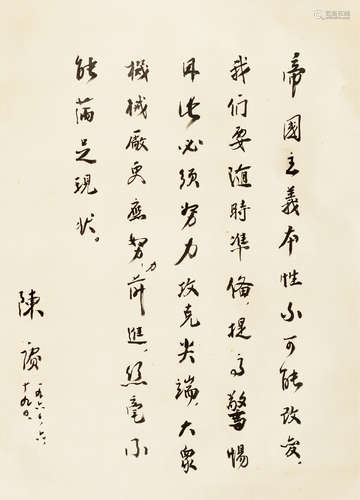 帝國主義本性不可能改变,
我们要隨時準備,提高警惕
因此必须努力攻克尖端,大眾
機械廠更應努力前進,丝毫不
能滿足現狀。
陳賡
一九六〇.六.
十九日.